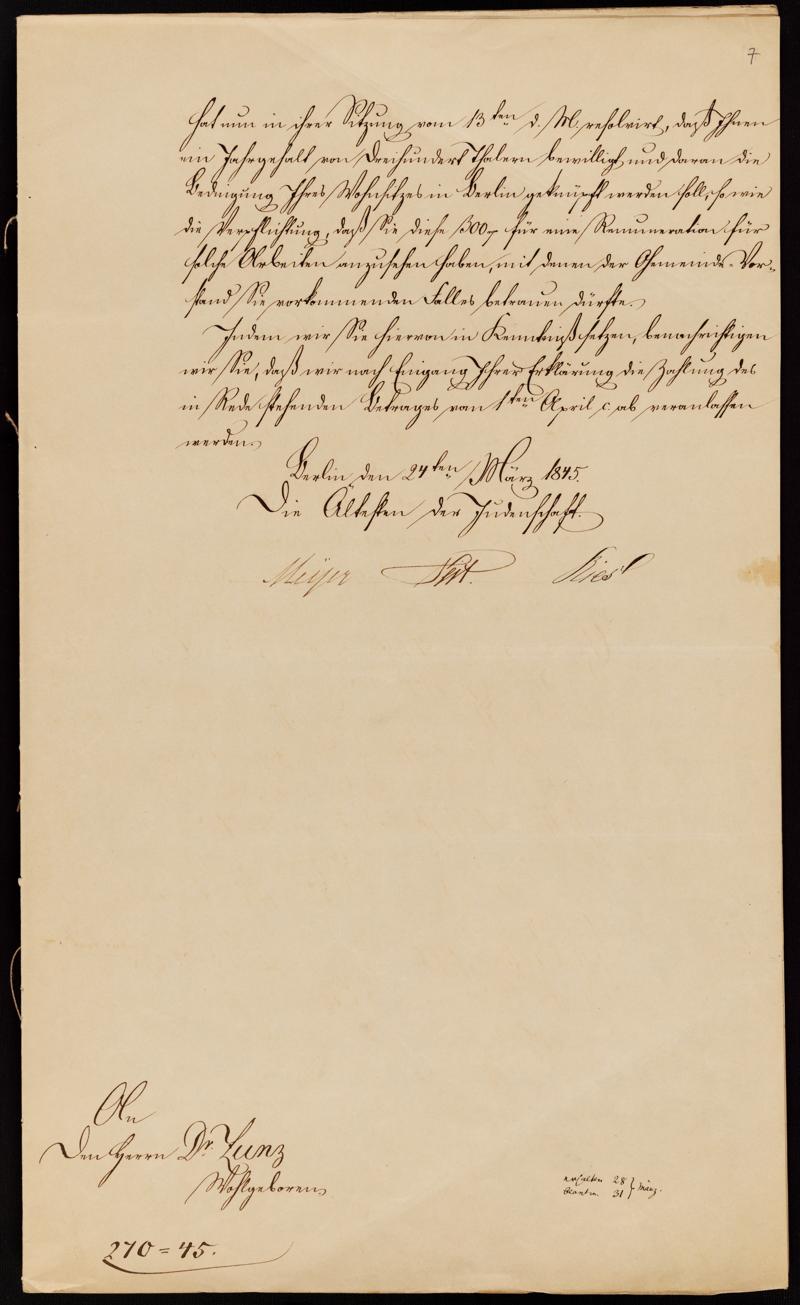 7
hat nun in ihrer Sitzung vom 13ten d. M. resolvirt, daß Ihnen
ein Jahrgehalt von Dreihundert Thalern bewilligt und daran die
Bedingung Ihres Wohnsitzes in Berlin geknüpft werden soll, so wie
die Verpflichtung, daß Sie diese 300 für eine Remuneration für
solche Arbeiten anzusehen haben, mit denen der Gemeinde-Vor-
stand Sie vorkommenden Falles betrauen dürfte.
Indem wir Sie hiervon in Kenntniß setzen, benachrichtigen
wir Sie, daß wir nach Eingang Ihrer Erklärung die Zahlung des
in Rede stehenden Betrages vom 1ten April c. ab veranlassen
werden.
Berlin den 24ten März 1845.
Die Ältesten der Judenschaft.
Meyer Veit. Riess
An
Den Herrn Dr. Zunz
Wohlgeboren
erhalten 28 } März.
beantw. 31
270=45.